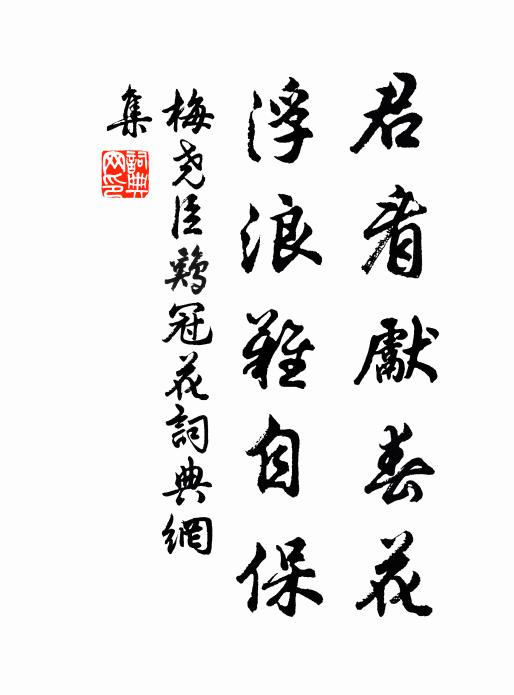 君看獻春花
浮浪難自保
梅尧臣鷄冠花詞典網
集
詞典网印